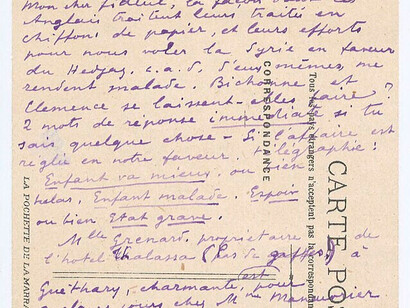 Mon cher fidèle, la façon dont les
Anglais traitent leurs traités en
chiffons de papier, et leurs efforts
pour nous voler la Syrie en faveur
du Hedjaz, c.a.d. d'eux-mêmes, me
rendent malade. Bichonne et
Clemence se laissent-elles faire?
2 mots de réponse immédiate si tu
sais quelque chose - Si l'affaire est
réglée en notre faveur, télégraphie:
Enfant va mieux. ou bien
helas. Enfant malade. Espoir
ou bien Etat grave.
Mlle Grenard, propriétaire de
l'hotel Thalassa (pas de gaffes) à
Guéthary, est charmante, pour
jours chez Mme
CORRESPONDANCE
Tous les pays étrangers n'acceptent pas la correspondance
CARTE PO
LA POCHETTE DE LA MARRAINE